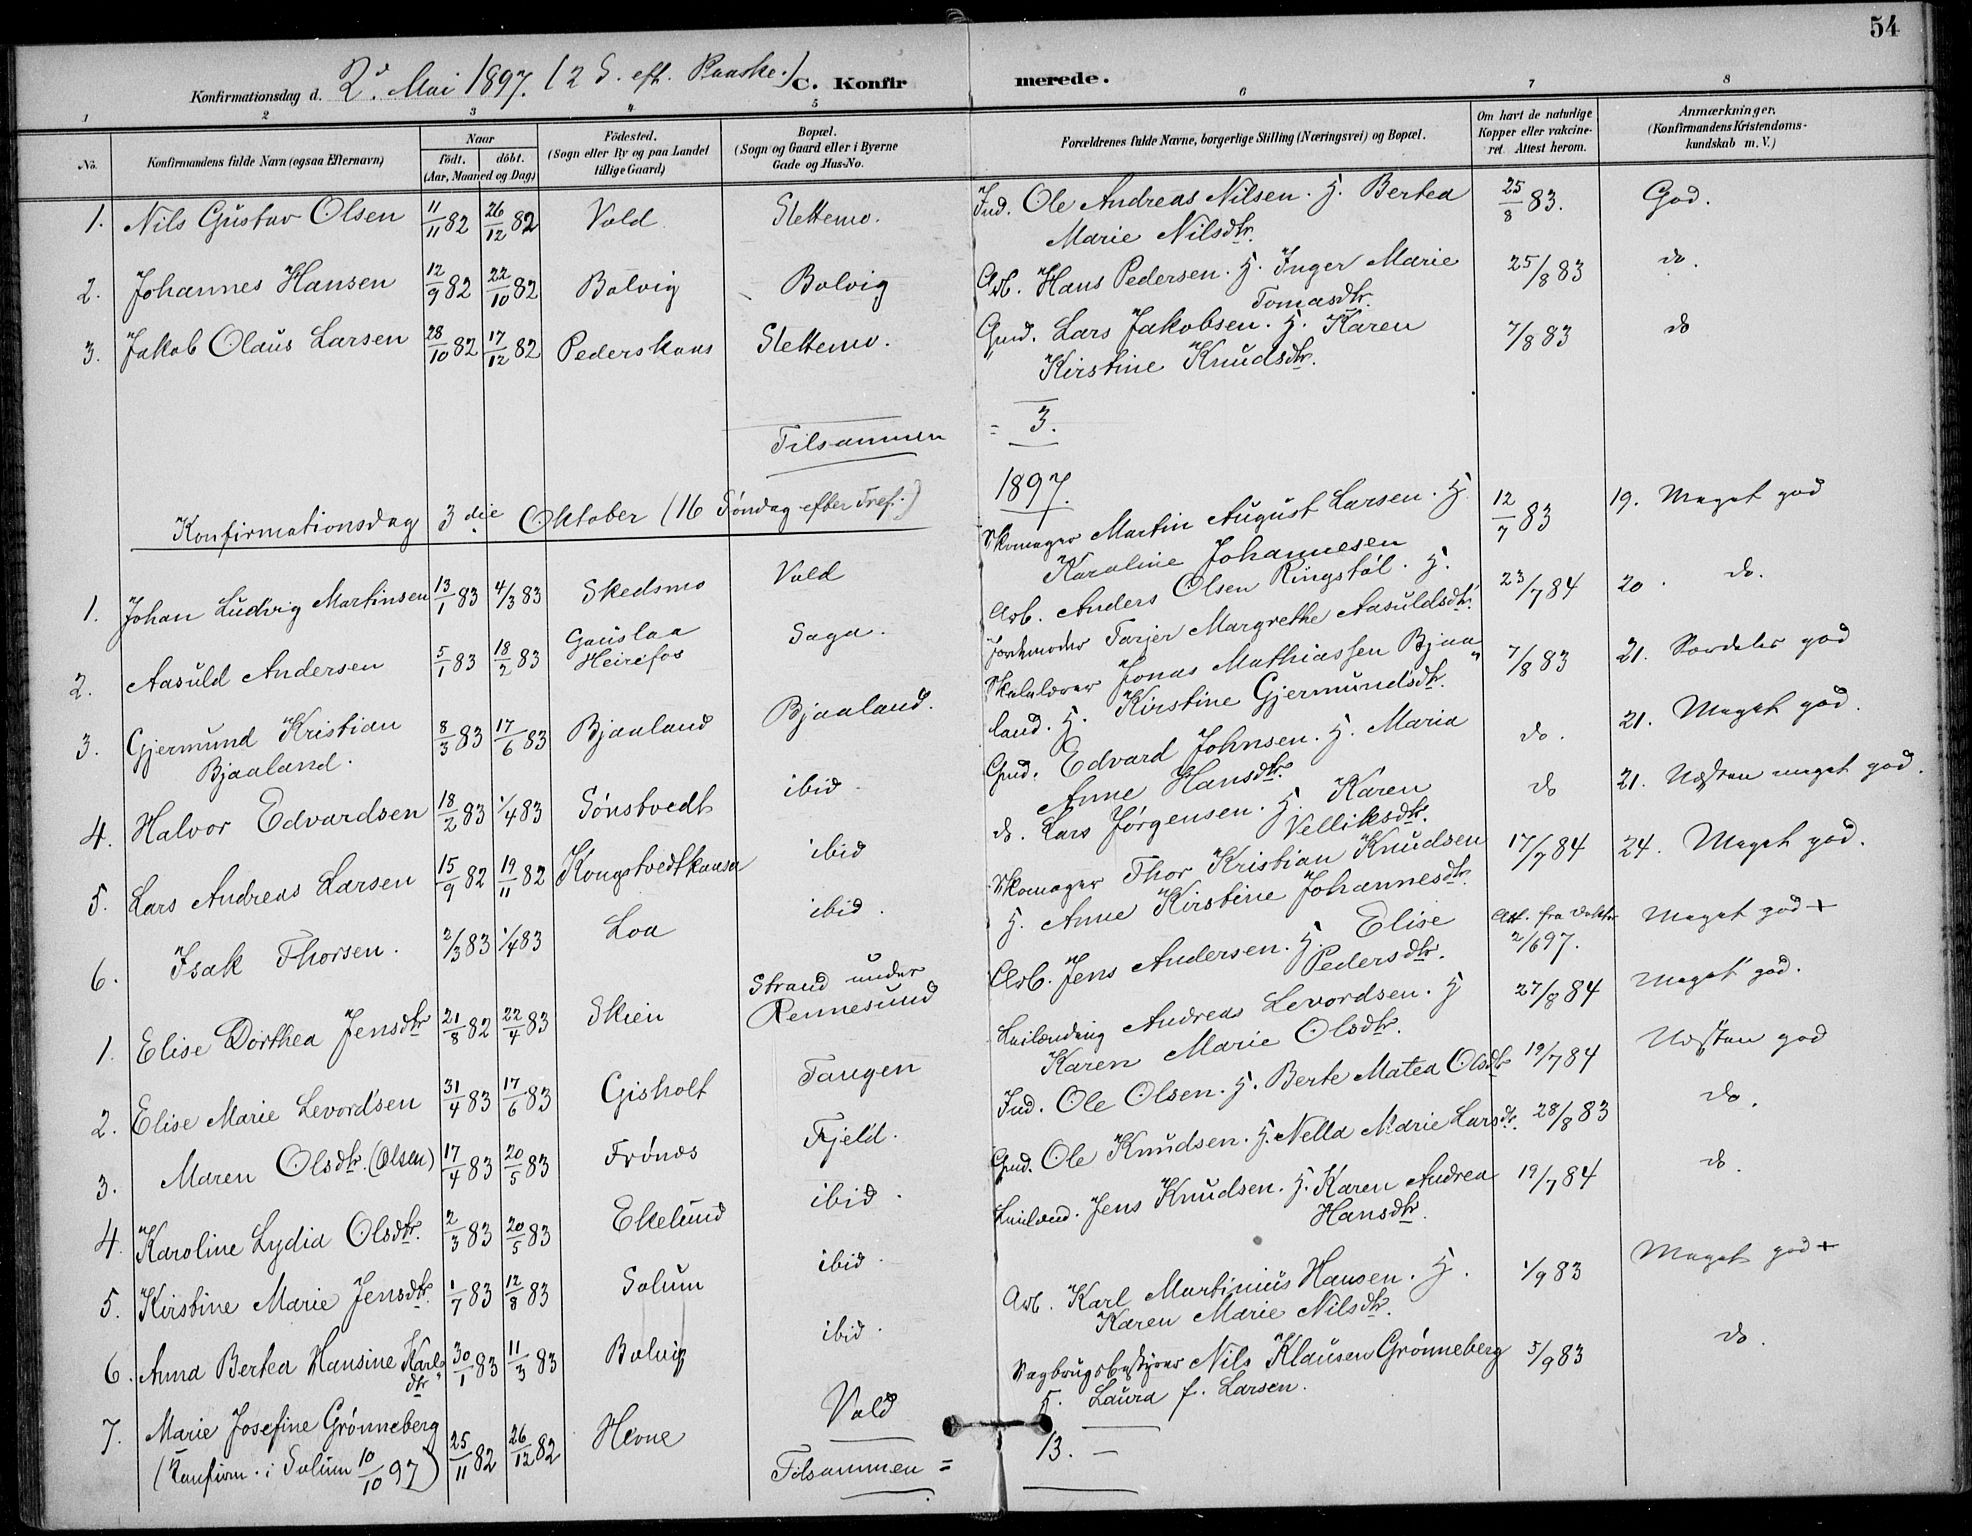 54
Konfirmationsdag d. 2d Mai 1897. (2 S. eft. Paaske.) C. Konfirmerede.
1 2 3 4 5 6 7 8
No. Konfirmandens fulde Navn (ogsaa Efternavn) Naar födt. döbt. (Aar, Maaned og Dag) Födested. (Sogn eller By og paa Landet tillige Gaard) Bopæl. (Sogn og Gaard eller i Byerne Gade og Hus-No. Forældrenes fulde Navne, borgerlige Stilling (Næringsvei) og Bopæl. Om havt de naturlige Kopper eller vakcineret. Attest herom. Anmærkninger. (Konfirmandens Kristendomskundskab m. V.)
1. Nils Gustav Olsen 11/11 82 26/12 82 Vold Slettemo. Ind. Ole Andreas Nilsen. H. Bertea 25/8 83. God.
Marie Nilsdtr.
2. Johannes Hansen 12/9 82 22/10 82 Bolvig Bolvig Arb. Hans Pedersen. H. Inger Marie 25/8 83 do.
Tomasdtr.
3. Jakob Olaus Larsen 28/10 82 17/12 82 Pederskaas Slettemo. Gmd. Lars Jakobsen. H. Karen 7/8 83 do
Kirstine Knudsdtr.
Tilsammen = 3.
Konfirmationsdag 3die Oktober (16 Søndag efter Tref.) 1897.
1. Johan Ludvig Martinsen 13/1 83 4/3 83 Skedsmo Vold Skomager Martin August Larsen. H. 12/7 83 19. Meget god
Karoline Johannesen
2. Aasuld Andersen 5/1 83 18/2 83 Gauslaa Heirefos Saga. Arb. Anders Olsen Ringstøl. H. 23/7 84 20. do.
Jordmoder Tarjer Margrethe Aasuldsdtr.
3. Gjermund Kristian Bjaaland. 8/3 83 17/6 83 Bjaaland Bjaaland. Skolelærer Jonas Mathiassen Bjaa- 7/8 83 21. Særdeles god
land. H. Kirstine Gjermundsdtr.
4. Halvor Edvardsen 18/2 83 1/4 83 Sønstvedt ibid. Gmd. Edvard Johnsen. H. Maria do. 21. Meget god.
Anne Hansdtr.
5. Lars Andreas Larsen 15/9 82 19/11 82 Kongstvedtkaasa ibid do. Lars Jørgensen. H. Karen do 21. Næsten meget god.
Velliksdtr.
6. Isak Thorsen. 2/3 83 1/4 83 Loa ibid. Skomager Thor Kristian Knudsen 17/7 84 24. Meget god.
H. Anne Kirstine Johannesdtr.
1. Elise Dorthea Jensdtr 21/8 82 22/4 83 Skien Strand under Rennesund Arb. Jens Andersen. H. Elise Att. fra Doktor 2/6 97. Meget god +
Pedersdtr.
2. Elise Marie Levordsen 31/4 83 17/6 83 Gisholt Tangen Leilænding Andreas Levordsen. H 27/8 84 Meget god.
Karen Marie Olsdtr.
3. Maren Olsdtr. (Olsen) 17/4 83 20/5 83 Frønes Fjeld. Ind. Ole Olsen. H. Berte Matea Olsdtr 19/7 84 Næsten god
4. Karoline Lydia Olsdtr. 2/3 83 20/5 83 Ekelund ibid. Gmd. Ole Knudsen. H. Nella Marie Larsdtr. 28/8 83 do.
5. Kirstine Marie Jensdtr. 1/7 83 12/8 83 Solum ibid. Leilænd. Jens Knudsen. H. Karen Andrea 19/7 84 do.
Hansdtr.
6. Anna Bertea Hansine Karls- dtr 30/1 83 11/3 83 Bolvig ibid. Arb. Karl Martinius Hansen. H. 1/9 83 Meget god +
Karen Marie Nilsdtr.
7. Marie Josefine Grønneberg 25/11 82 26/12 82 Herne Vold Nils Klausen Grønneberg 5/9 83 do.
(Konfirm. i Solum 10/10 97) H. Laura f. Larsen.
Tilsammen = 13. —